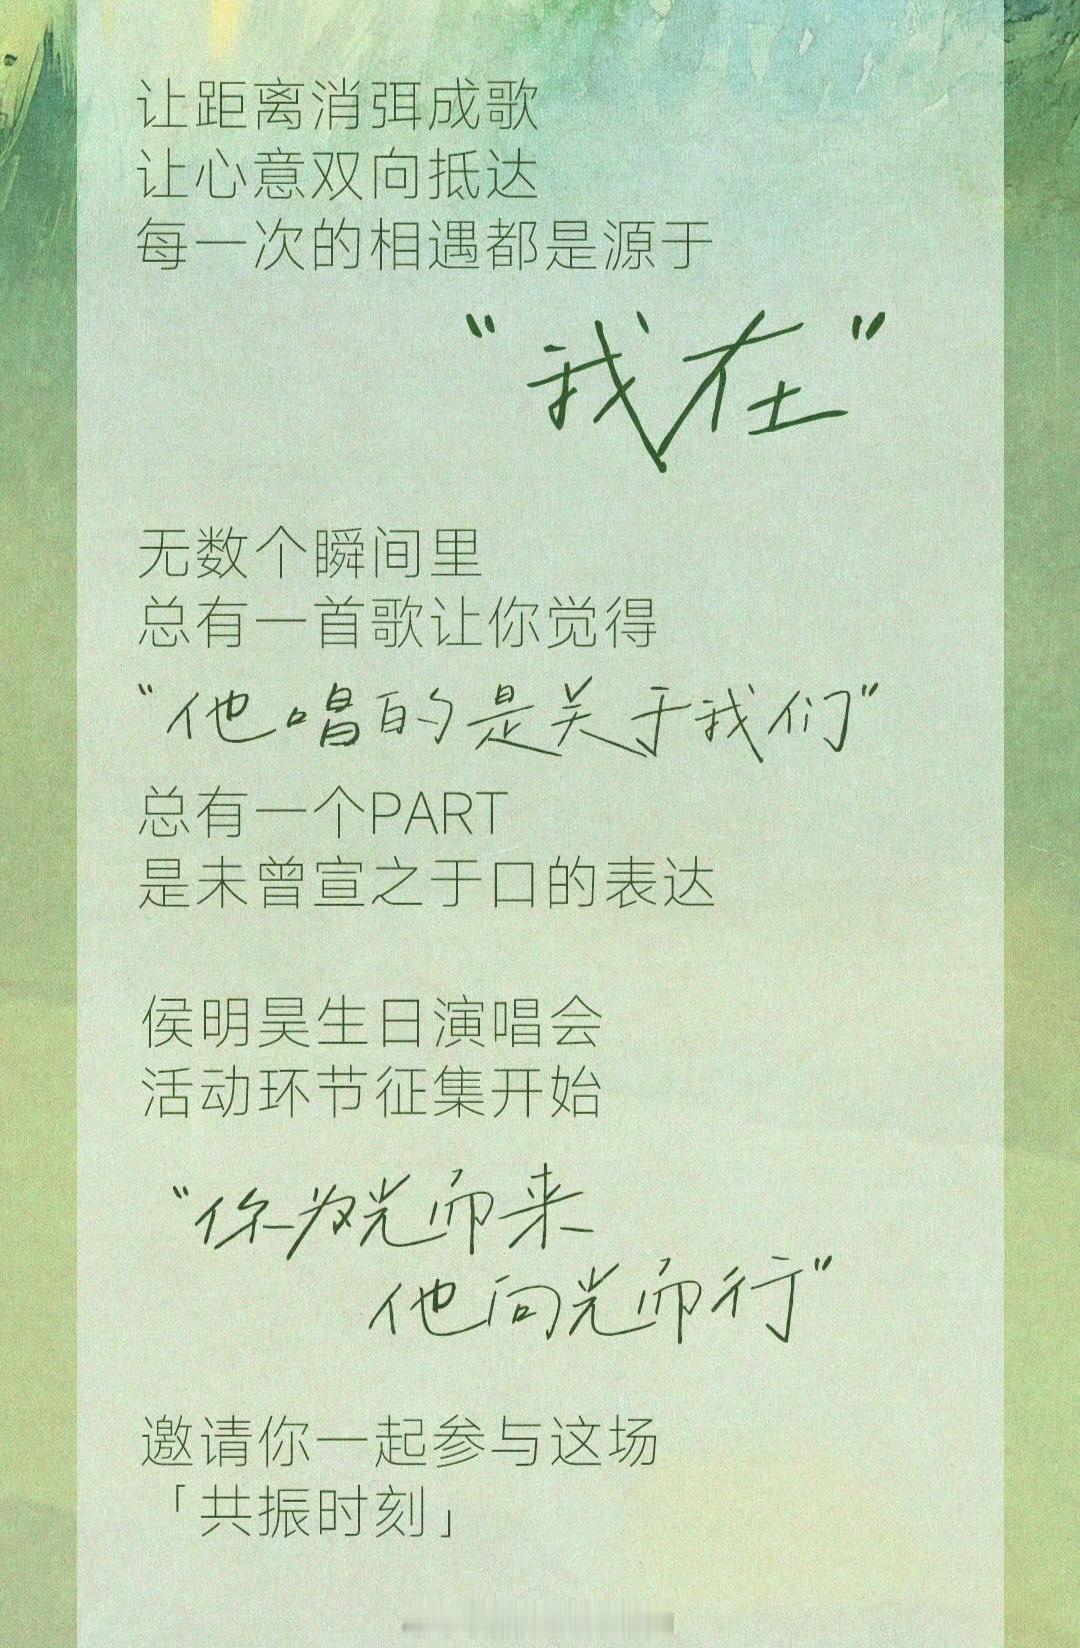 让距离消弭成歌
让心意双向抵达
每一次的相遇都是源于
“我在”
无数个瞬间里
总有一首歌让你觉得
“他唱的是关于我们”
总有一个PART
是未曾宣之于口的表达
侯明昊生日演唱会
活动环节征集开始
“你为光而来
他向光而行”
邀请你一起参与这场
「共振时刻」